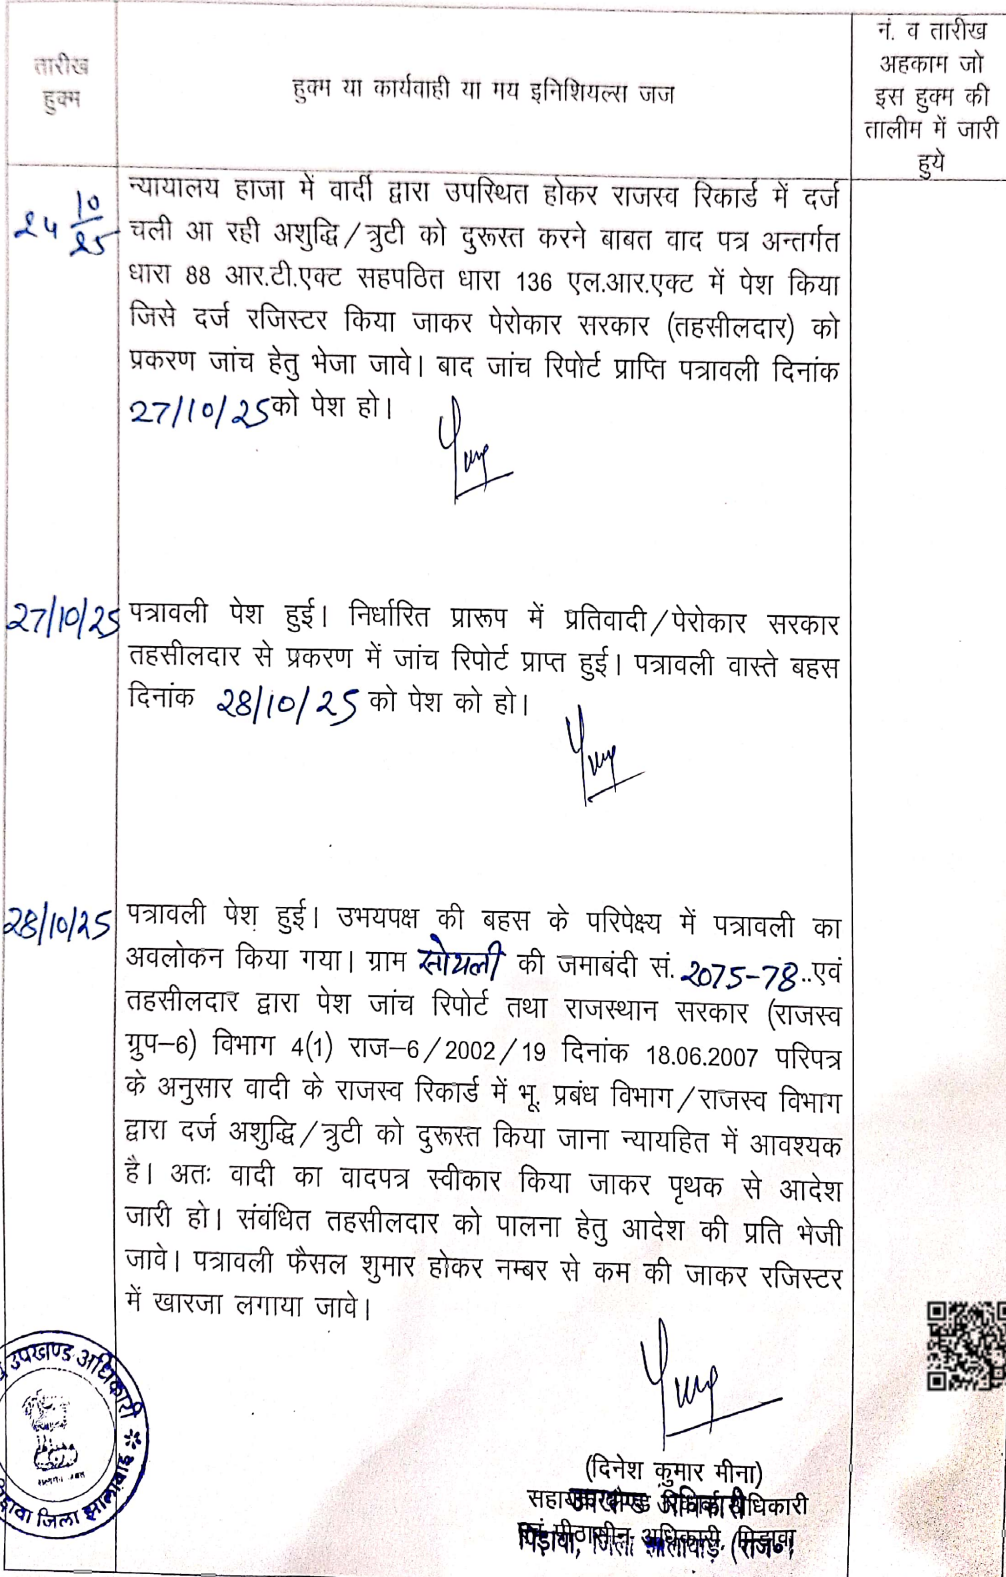 तारीख
हुक्म
हुक्म या कार्यवाही या मय इनिशियल्स जज
नं. व तारीख
अहकाम जो
इस हुक्म की
तालीम में जारी
हुये
24 10/25
न्यायालय हाजा में वार्दी द्वारा उपस्थित होकर राजस्व रिकार्ड में दर्ज
चली आ रही अशुद्धि/त्रुटी को दुरूस्त करने बाबत वाद पत्र अन्तर्गत
धारा 88 आर.टी.एक्ट सहपठित धारा 136 एल.आर.एक्ट में पेश किया
जिसे दर्ज रजिस्टर किया जाकर पेरोकार सरकार (तहसीलदार) को
प्रकरण जांच हेतु भेजा जावे। बाद जांच रिपोर्ट प्राप्ति पत्रावली दिनांक
27/10/25 को पेश हो।
27/10/25
पत्रावली पेश हुई। निर्धारित प्रारूप में प्रतिवादी/पेरोकार सरकार
तहसीलदार से प्रकरण में जांच रिपोर्ट प्राप्त हुई। पत्रावली वास्ते बहस
दिनांक 28/10/25 को पेश को हो।
28/10/25
पत्रावली पेश हुई। उभयपक्ष की बहस के परिपेक्ष्य में पत्रावली का
अवलोकन किया गया। ग्राम सोयली की जमाबंदी सं. 2075-78..एवं
तहसीलदार द्वारा पेश जांच रिपोर्ट तथा राजस्थान सरकार (राजस्व
ग्रुप–6) विभाग 4(1) राज–6/2002/19 दिनांक 18.06.2007 परिपत्र
के अनुसार वादी के राजस्व रिकार्ड में भू. प्रबंध विभाग/राजस्व विभाग
द्वारा दर्ज अशुद्धि/त्रुटी को दुरूस्त किया जाना न्यायहित में आवश्यक
है। अतः वादी का वादपत्र स्वीकार किया जाकर पृथक से आदेश
जारी हो। संबंधित तहसीलदार को पालना हेतु आदेश की प्रति भेजी
जावे। पत्रावली फैसल शुमार होकर नम्बर से कम की जाकर रजिस्टर
में खारजा लगाया जावे।
उपखण्ड अधिकारी
जिला झालावाड़
(दिनेश कुमार मीना)
उपखण्ड अधिकारी
पिड़ावा, जिला झालावाड़ (राज०)